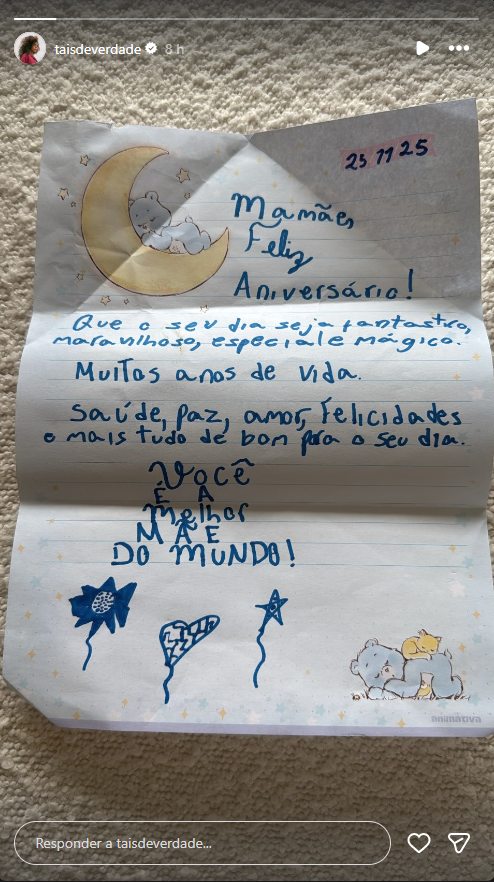 taisdeverdade 8 h
25 11 25
Mamãe,
Feliz
Aniversário!
Que o seu dia seja fantastico,
maravilhoso, especial e mágico.
Muitos anos de vida.
Saúde, paz, amor, Felicidades
e mais tudo de bom para o seu dia.
Você
É A
Melhor
MÃE
DO MUNDO!
animativa
Responder a taisdeverdade...